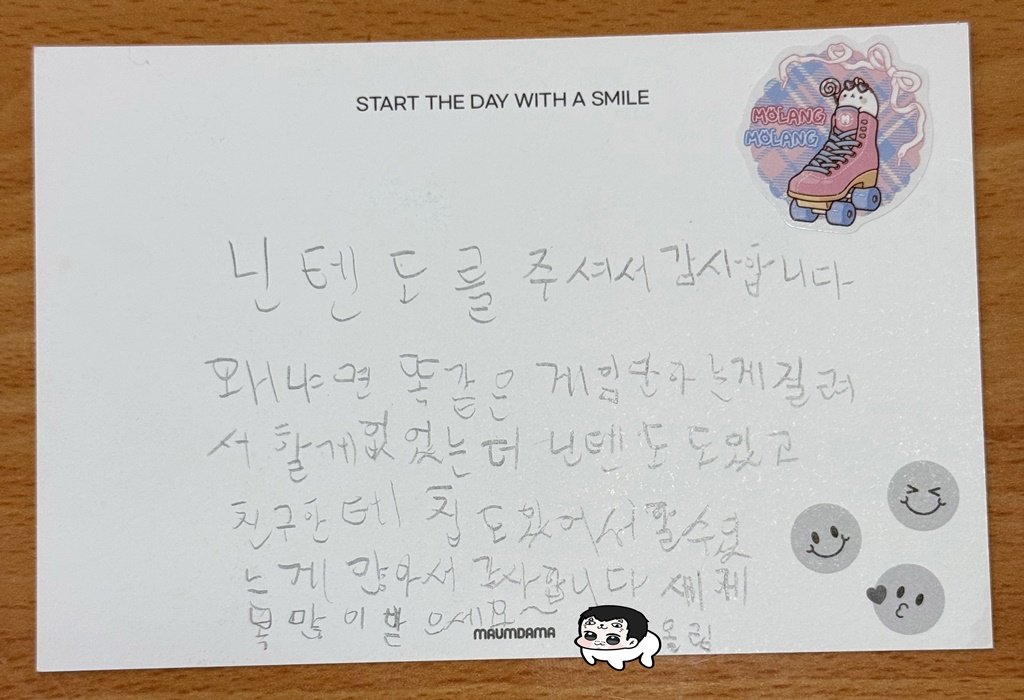 START THE DAY WITH A SMILE
MOLANG
MOLANG
닌텐도를 주셔서 감사합니다
왜냐면 똑같은 게임만하는게질려
서 할게없었는데 닌텐도도있고
친구한테 칩도있어서할수있
는게 많아서 감사합니다 새해
복 많이 받으세요~
MAUMDAMA
올림